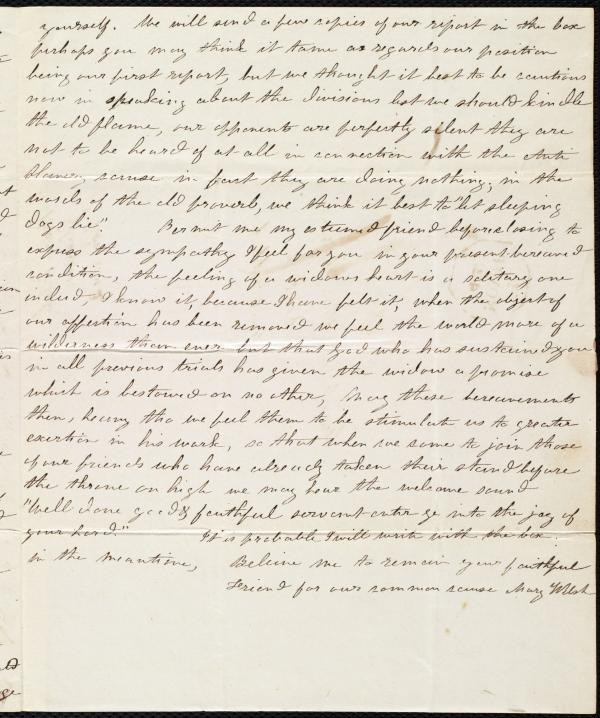 yourself. We will send a few copies of our report in the box
perhaps you may think it tame as regards our position
being our first report, but we thought it best to be cautious
now in speaking about the divisions lest we should kindle
the old flame, our opponents are perfectly silent they are
not to be heard of at all in connection with the Anti
Slavery cause in fact they are doing nothing, in the
words of the old proverb, we think it best to "let sleeping
dogs lie". Permit me my esteemed friend before closing to
express the sympathy I feel for you in your present bereaved
condition, the feeling of a widows heart is a solitary one
indeed I know it, because I have felt it, when the object of
our affection has been removed we feel the world more of a
wilderness than ever but that God who has sustained you
in all previous trials has given the widow a promise
which is bestowed on no other, May these bereavements
then, heavy tho we feel them to be stimulate us to greater
exertion in his work, so that when we come to join those
of our friends who have already taken their stand before
the throne on high we may hear the welcome sound
"Well done good & faithful servant enter ye into the joy of
your Lord." It is probable I will write with the box.
in the meantime, Believe me to remain your faithful
Friend for our common cause Mary Welsh